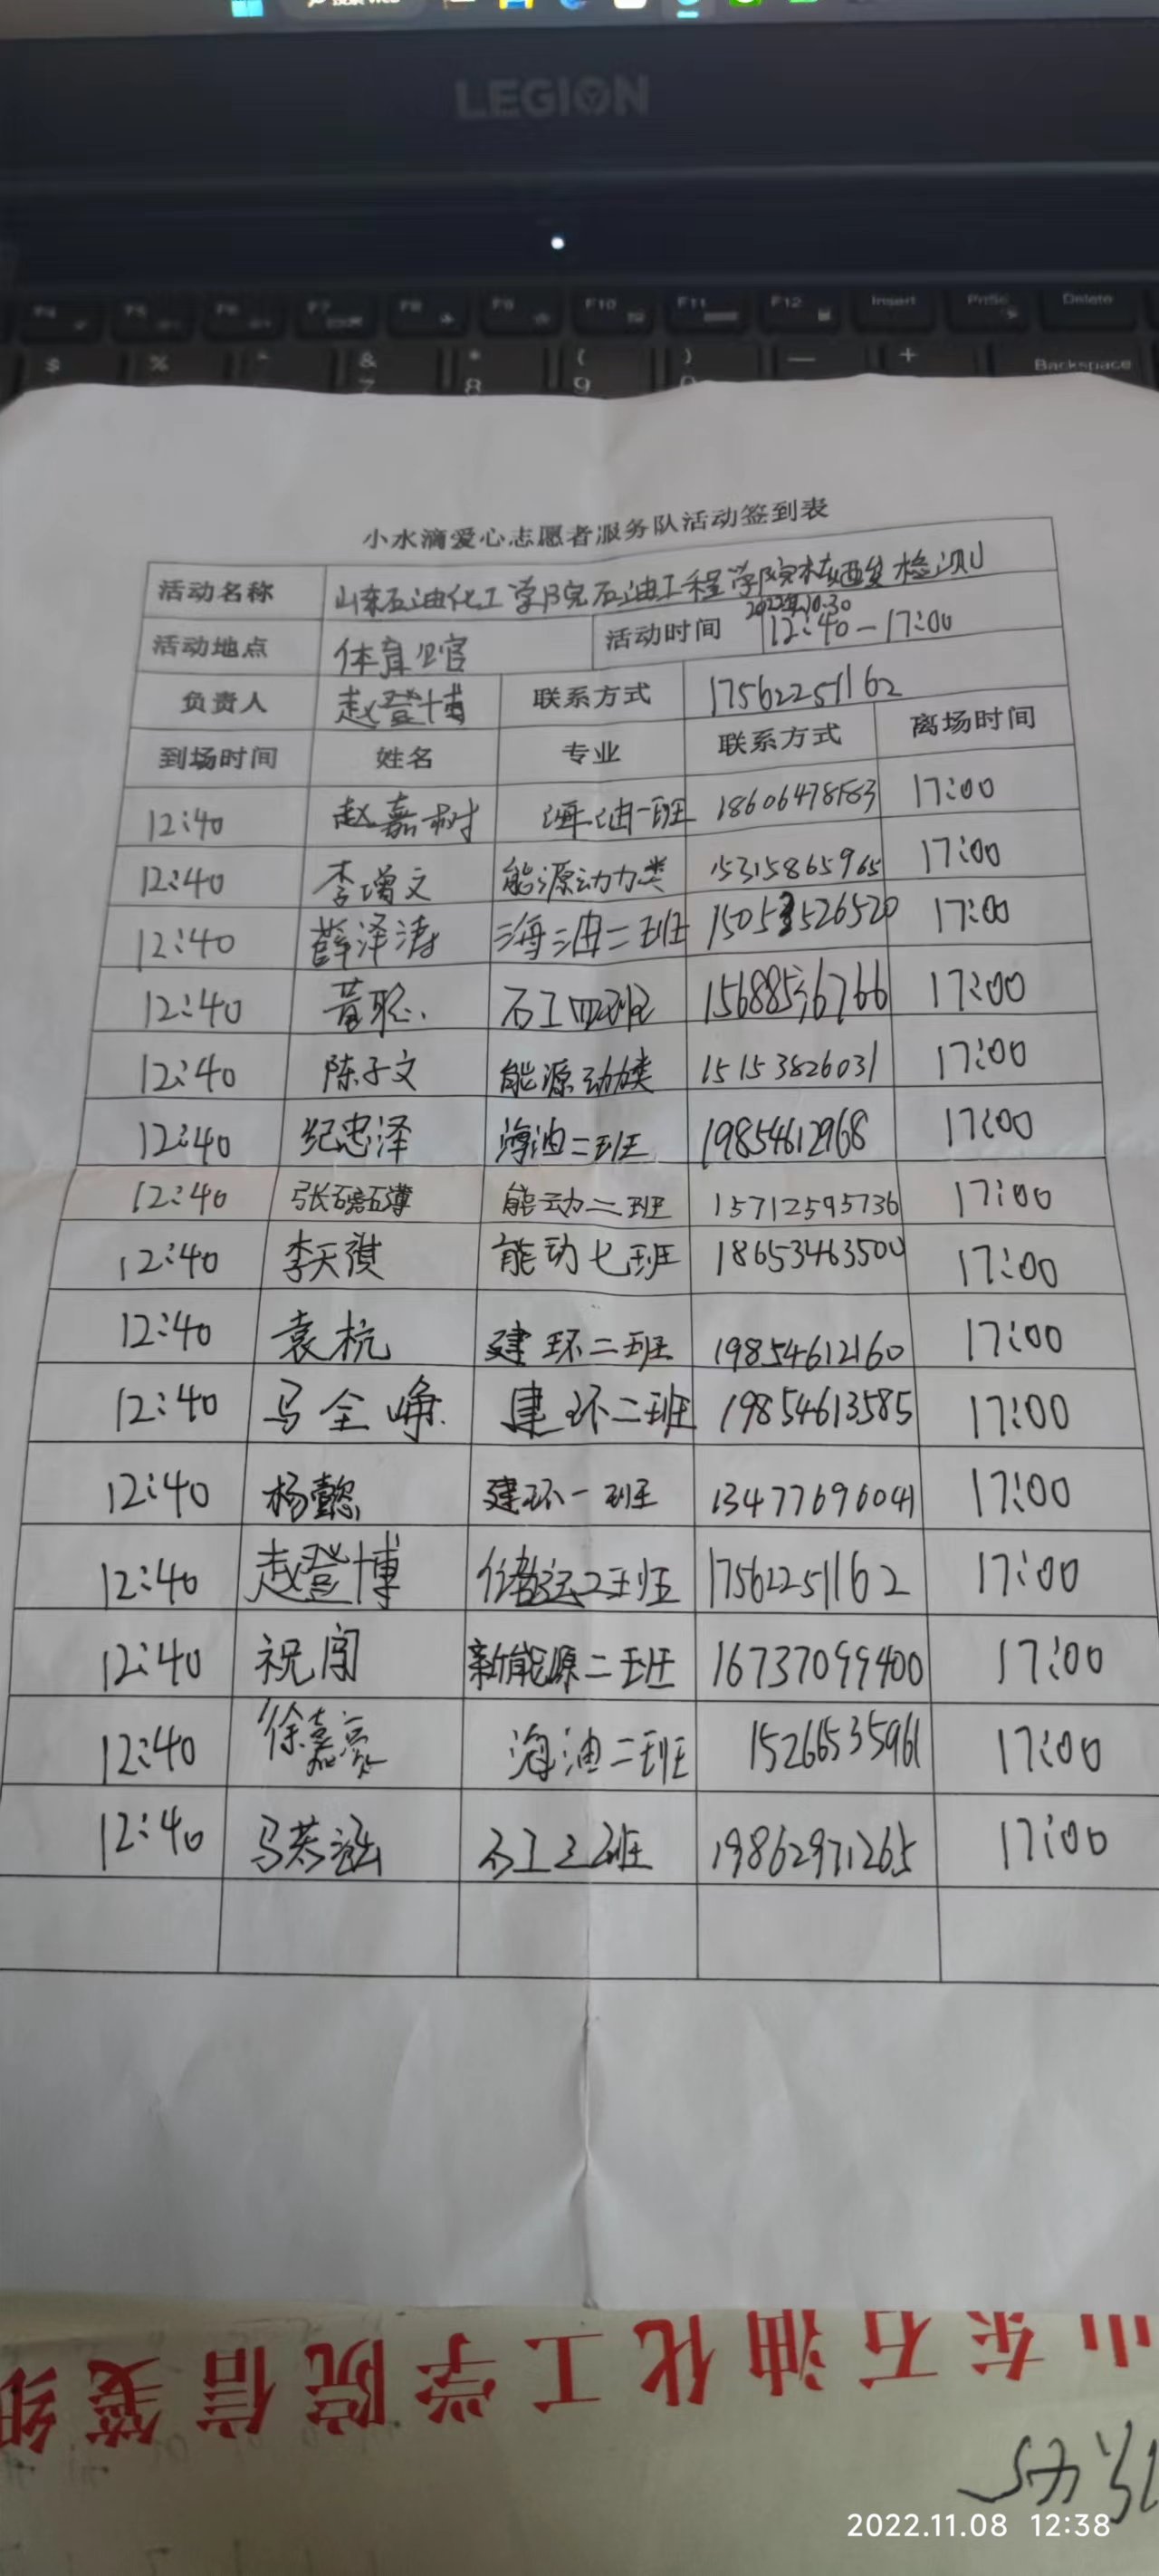 LEGION
F7 F8 F9 F10 F11 F12 Insert PrtSc Delete
$ % ^ & * ( ) — +
7 8 9 Backspace
小水滴爱心志愿者服务队活动签到表
活动名称 山东石油化工学院石油工程学院核酸检测
活动地点 体育馆 活动时间 2022年10.30 12:40-17:00
负责人 赵登博 联系方式 17562251162
到场时间 姓名 专业 联系方式 离场时间
12:40 赵嘉树 海油一班 18606478583 17:00
12:40 李增文 能源动力类 15315865965 17:00
12:40 薛泽涛 海油二班 15053526520 17:00
12:40 黄聪 石工四班 17:00
12:40 陈子文 能源动力类 15153826031 17:00
12:40 纪忠泽 海油二班 19854612968 17:00
12:40 张磅礴 能动二班 15712595736 17:00
12:40 李天祺 能动七班 18653463500 17:00
12:40 袁杭 建环二班 19854612160 17:00
12:40 马全峥 建环二班 19854613585 17:00
12:40 杨懿 建环一班 13477696041 17:00
12:40 赵登博 储运二班 17562251162 17:00
12:40 祝闯 新能源二班 16737099400 17:00
12:40 徐嘉亮 海油二班 15266535961 17:00
12:40 马恭 石工 19862971265 17:00
山东石油化工学院信笺纸
2022.11.08 12:38